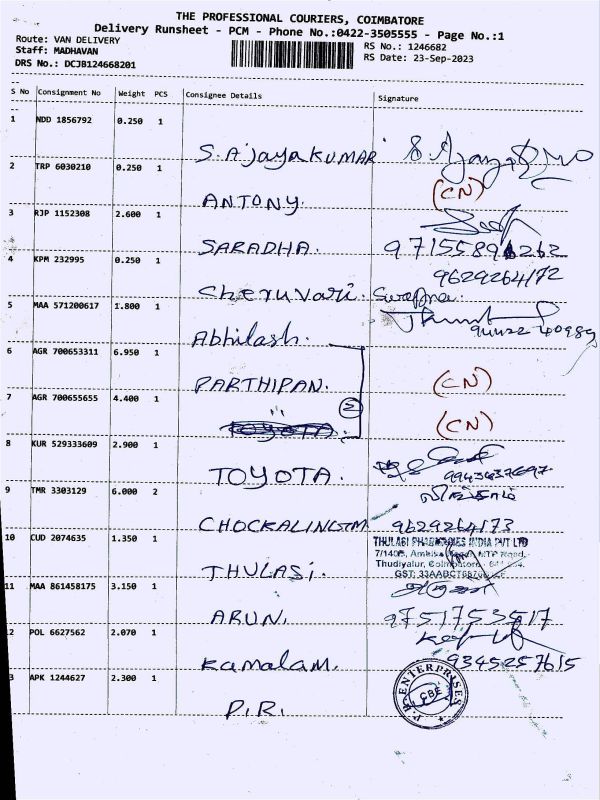 THE PROFESSIONAL COURIERS, COIMBATORE
Delivery Runsheet - PCM - Phone No.:0422-3505555 - Page No.:1
Route: VAN DELIVERY
Staff: MADHAVAN
DRS No.: DCJB124668201
RS No.: 1246682
RS Date: 23-Sep-2023
S No Consignment No Weight PCS Consignee Details Signature
1 NDD 1856792 0.250 1
S. AJayaKUMAR
2 TRP 6030210 0.250 1
ANTONY. (CN)
3 RJP 1152308 2.600 1
SARADHA.
4 KPM 232995 0.250 1
9629264172
Cheruvari. Swapna.
5 MAA 571200617 1.800 1
Abhilash.
6 AGR 700653311 6.950 1
PARTHIPAN. (CN)
7 AGR 700655655 4.400 1
2 (CN)
8 KUR 529333609 2.900 1
TOYOTA.
9 TMR 3303129 6.000 2
CHOCKALINGTM 9629264173
10 CUD 2074635 1.350 1
THULASI PHARMACIES INDIA PVT LTD
THULASI.
11 MAA 861458175 3.150 1
ARUN. 9751753517
2 POL 6627562 2.070 1
Kamalam. 9345257615
3 APK 1244627 2.300 1
P.R. ENTERPRISES
CBE
P.R.